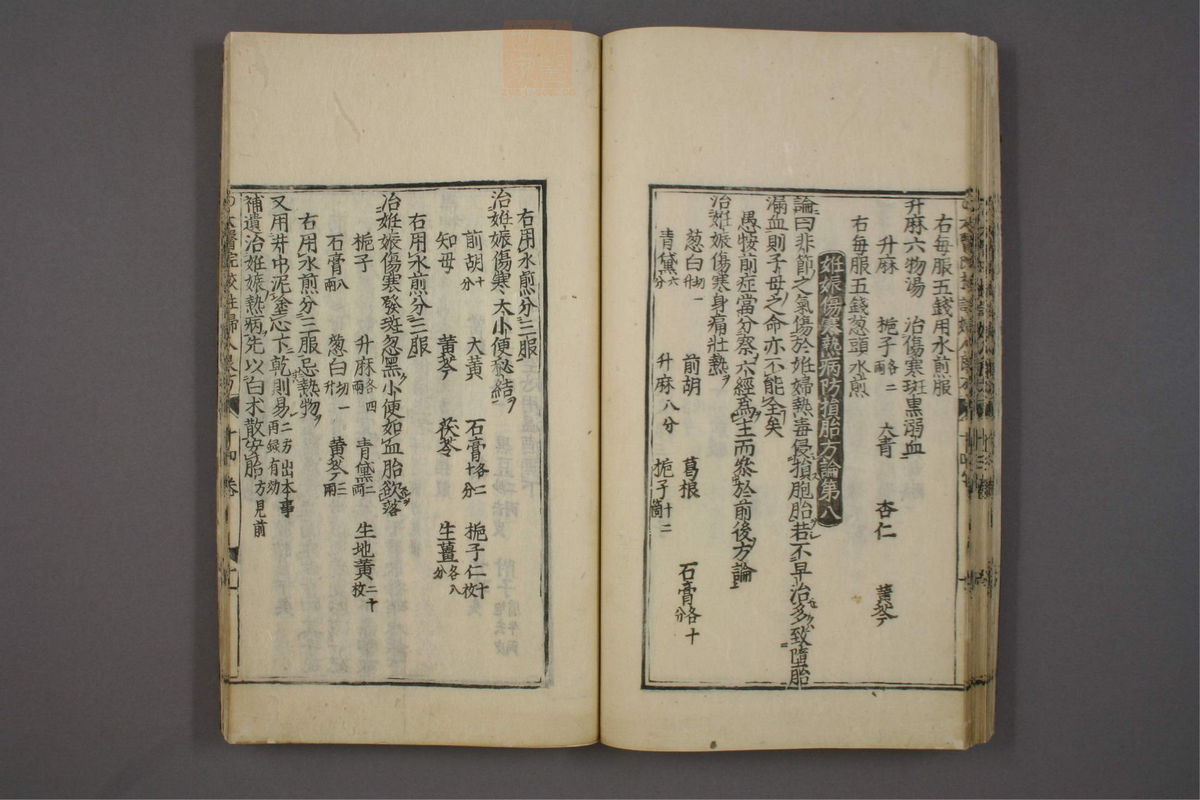 右毎服五錢用水煎服
升麻六物湯 治傷寒斑黒溺血
升麻 梔子各二兩 大青 杏仁 黄芩
右毎服五錢葱頭水煎
妊娠傷寒熱病防損胎方論第八
論曰非節之氣傷於妊婦熱毒侵損胞胎若不早治多致墮胎
漏血則子母之命亦不能全矣
愚按前症當分察六經爲主而叅於前後方論
治妊娠傷寒身痛壯熱
葱白切一升 前胡 葛根 石膏各十分
青黛六分 升麻八分 梔子十二箇
右用水煎分三服
治妊娠傷寒大小便秘結
前胡十分 大黄 石膏各二十分 梔子仁十枚
知母 黄芩 茯苓 生薑各八分
右用水煎分三服
治妊娠傷寒發斑忽黒小便如血胎欲落
梔子 升麻各四兩 青黛二兩 生地黄二十枚
石膏八兩 葱白切一升 黄芩三兩
右用水煎分三服忌熱物
又用井中泥塗心下乾則易二方出本事再録有効
補遺治妊娠熱病先以白术散安胎方見前
太醫院校註婦人良方 十四卷